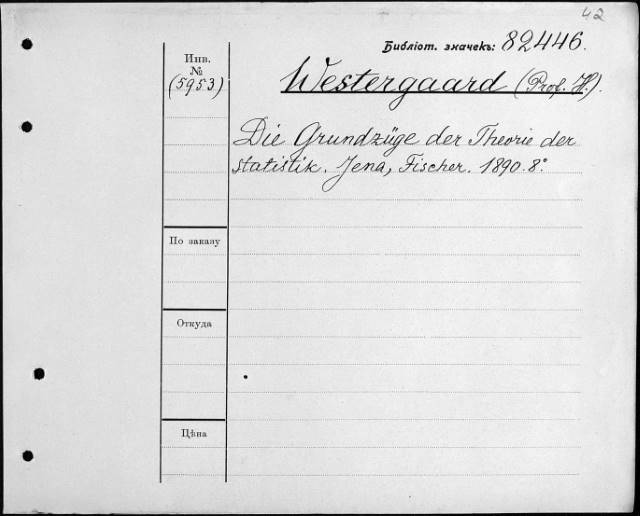 42
Библіот. значекъ: 82446.
Инв.
№
(5953)
Westergaard (Prof. H.).
Die Grundzüge der Theorie der
Statistik. Jena, Fischer. 1890. 8°.
По заказу
Откуда
Цѣна